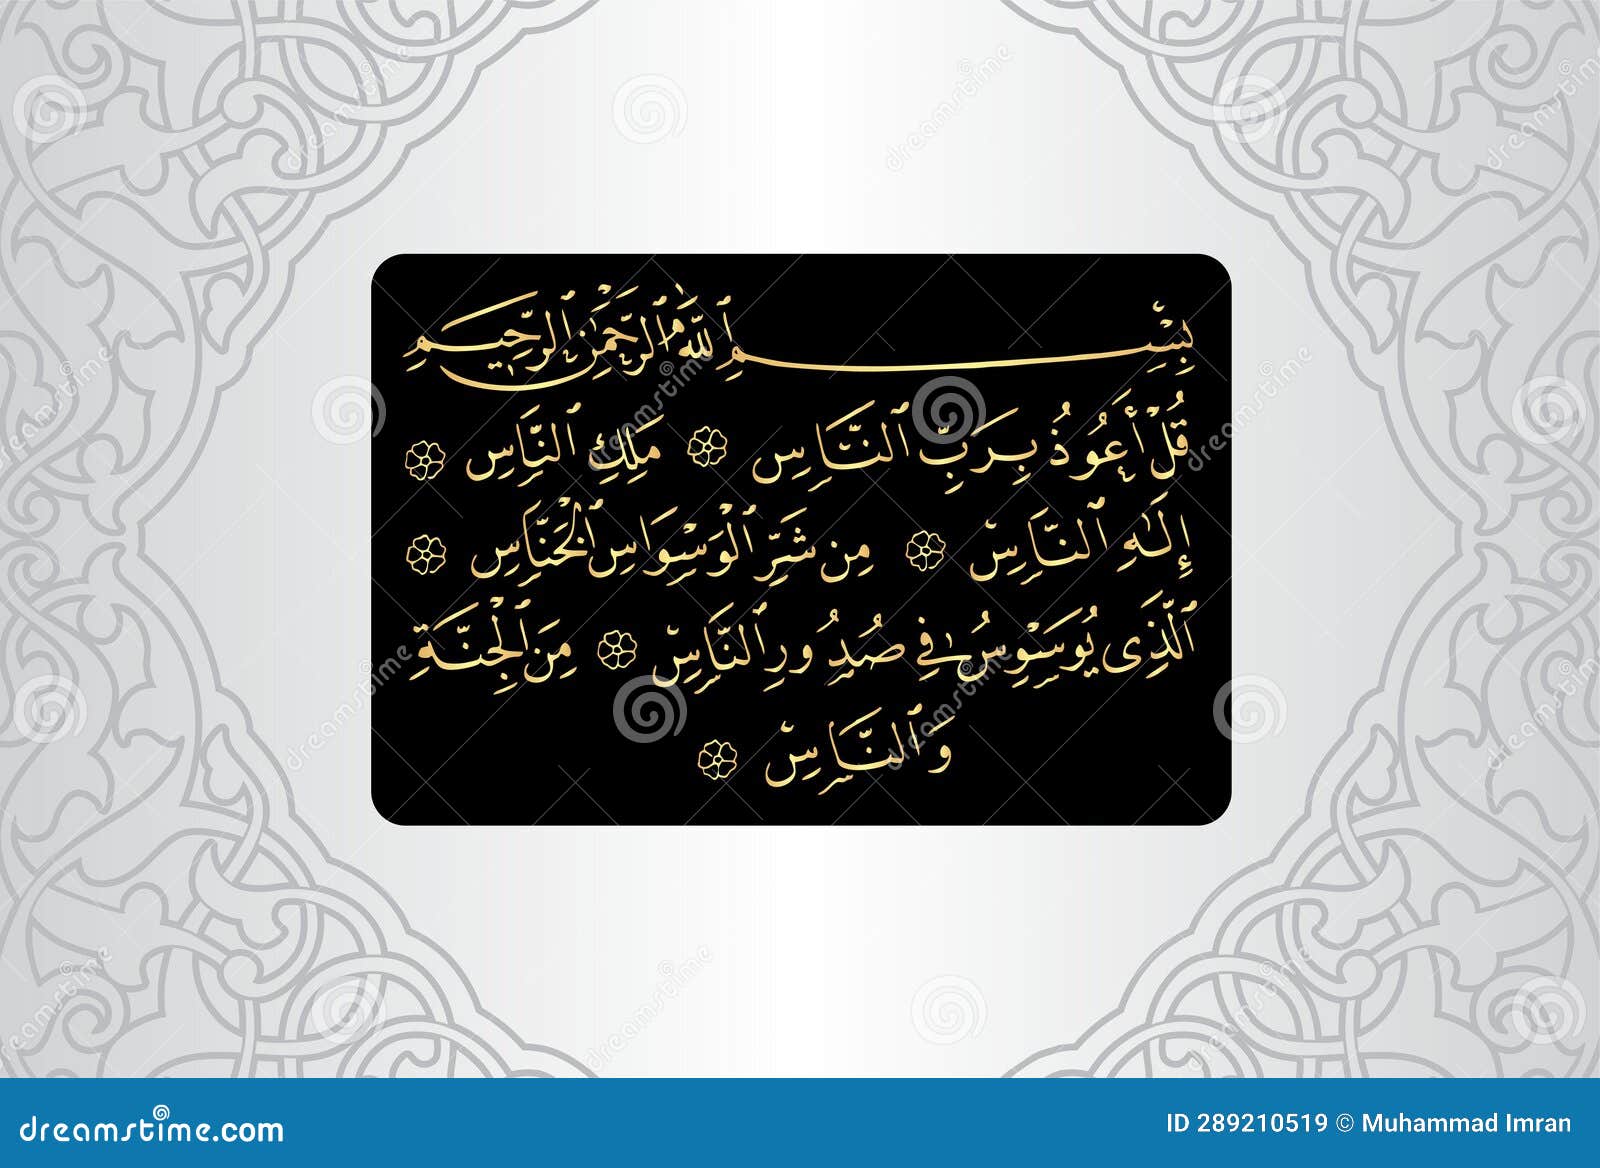 بِسْمِ ٱللَّهِ ٱلرَّحْمَٰنِ ٱلرَّحِيمِ
قُلْ أَعُوذُ بِرَبِّ ٱلنَّاسِ ۝ مَلِكِ ٱلنَّاسِ ۝
إِلَٰهِ ٱلنَّاسِ ۝ مِن شَرِّ ٱلْوَسْوَاسِ ٱلْخَنَّاسِ ۝
ٱلَّذِى يُوَسْوِسُ فِى صُدُورِ ٱلنَّاسِ ۝ مِنَ ٱلْجِنَّةِ
وَٱلنَّاسِ ۝
dreamstime.com
ID 289210519 © Muhammad Imran